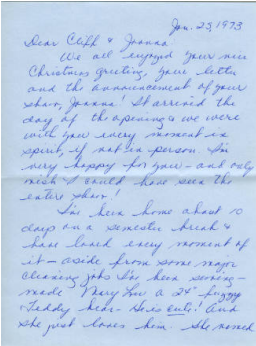 Jan. 23, 1973
Dear Cliff & Joanna
We all enjoyed your nice
Christmas greeting, your letter
and the announcement of your
show, Joanna! It arrived the
day of the opening & we were
with you every moment in
spirit, if not in person. I'm
very happy for you - and only
wish I could have seen the
entire show!
I've been home about 10
days on a semester break &
have loved every moment of
it - aside from some major
cleaning jobs I've been sewing -
made Mary Lou a 24" fuzzy
Teddy bear - He is cute! and
she just loves him. She named